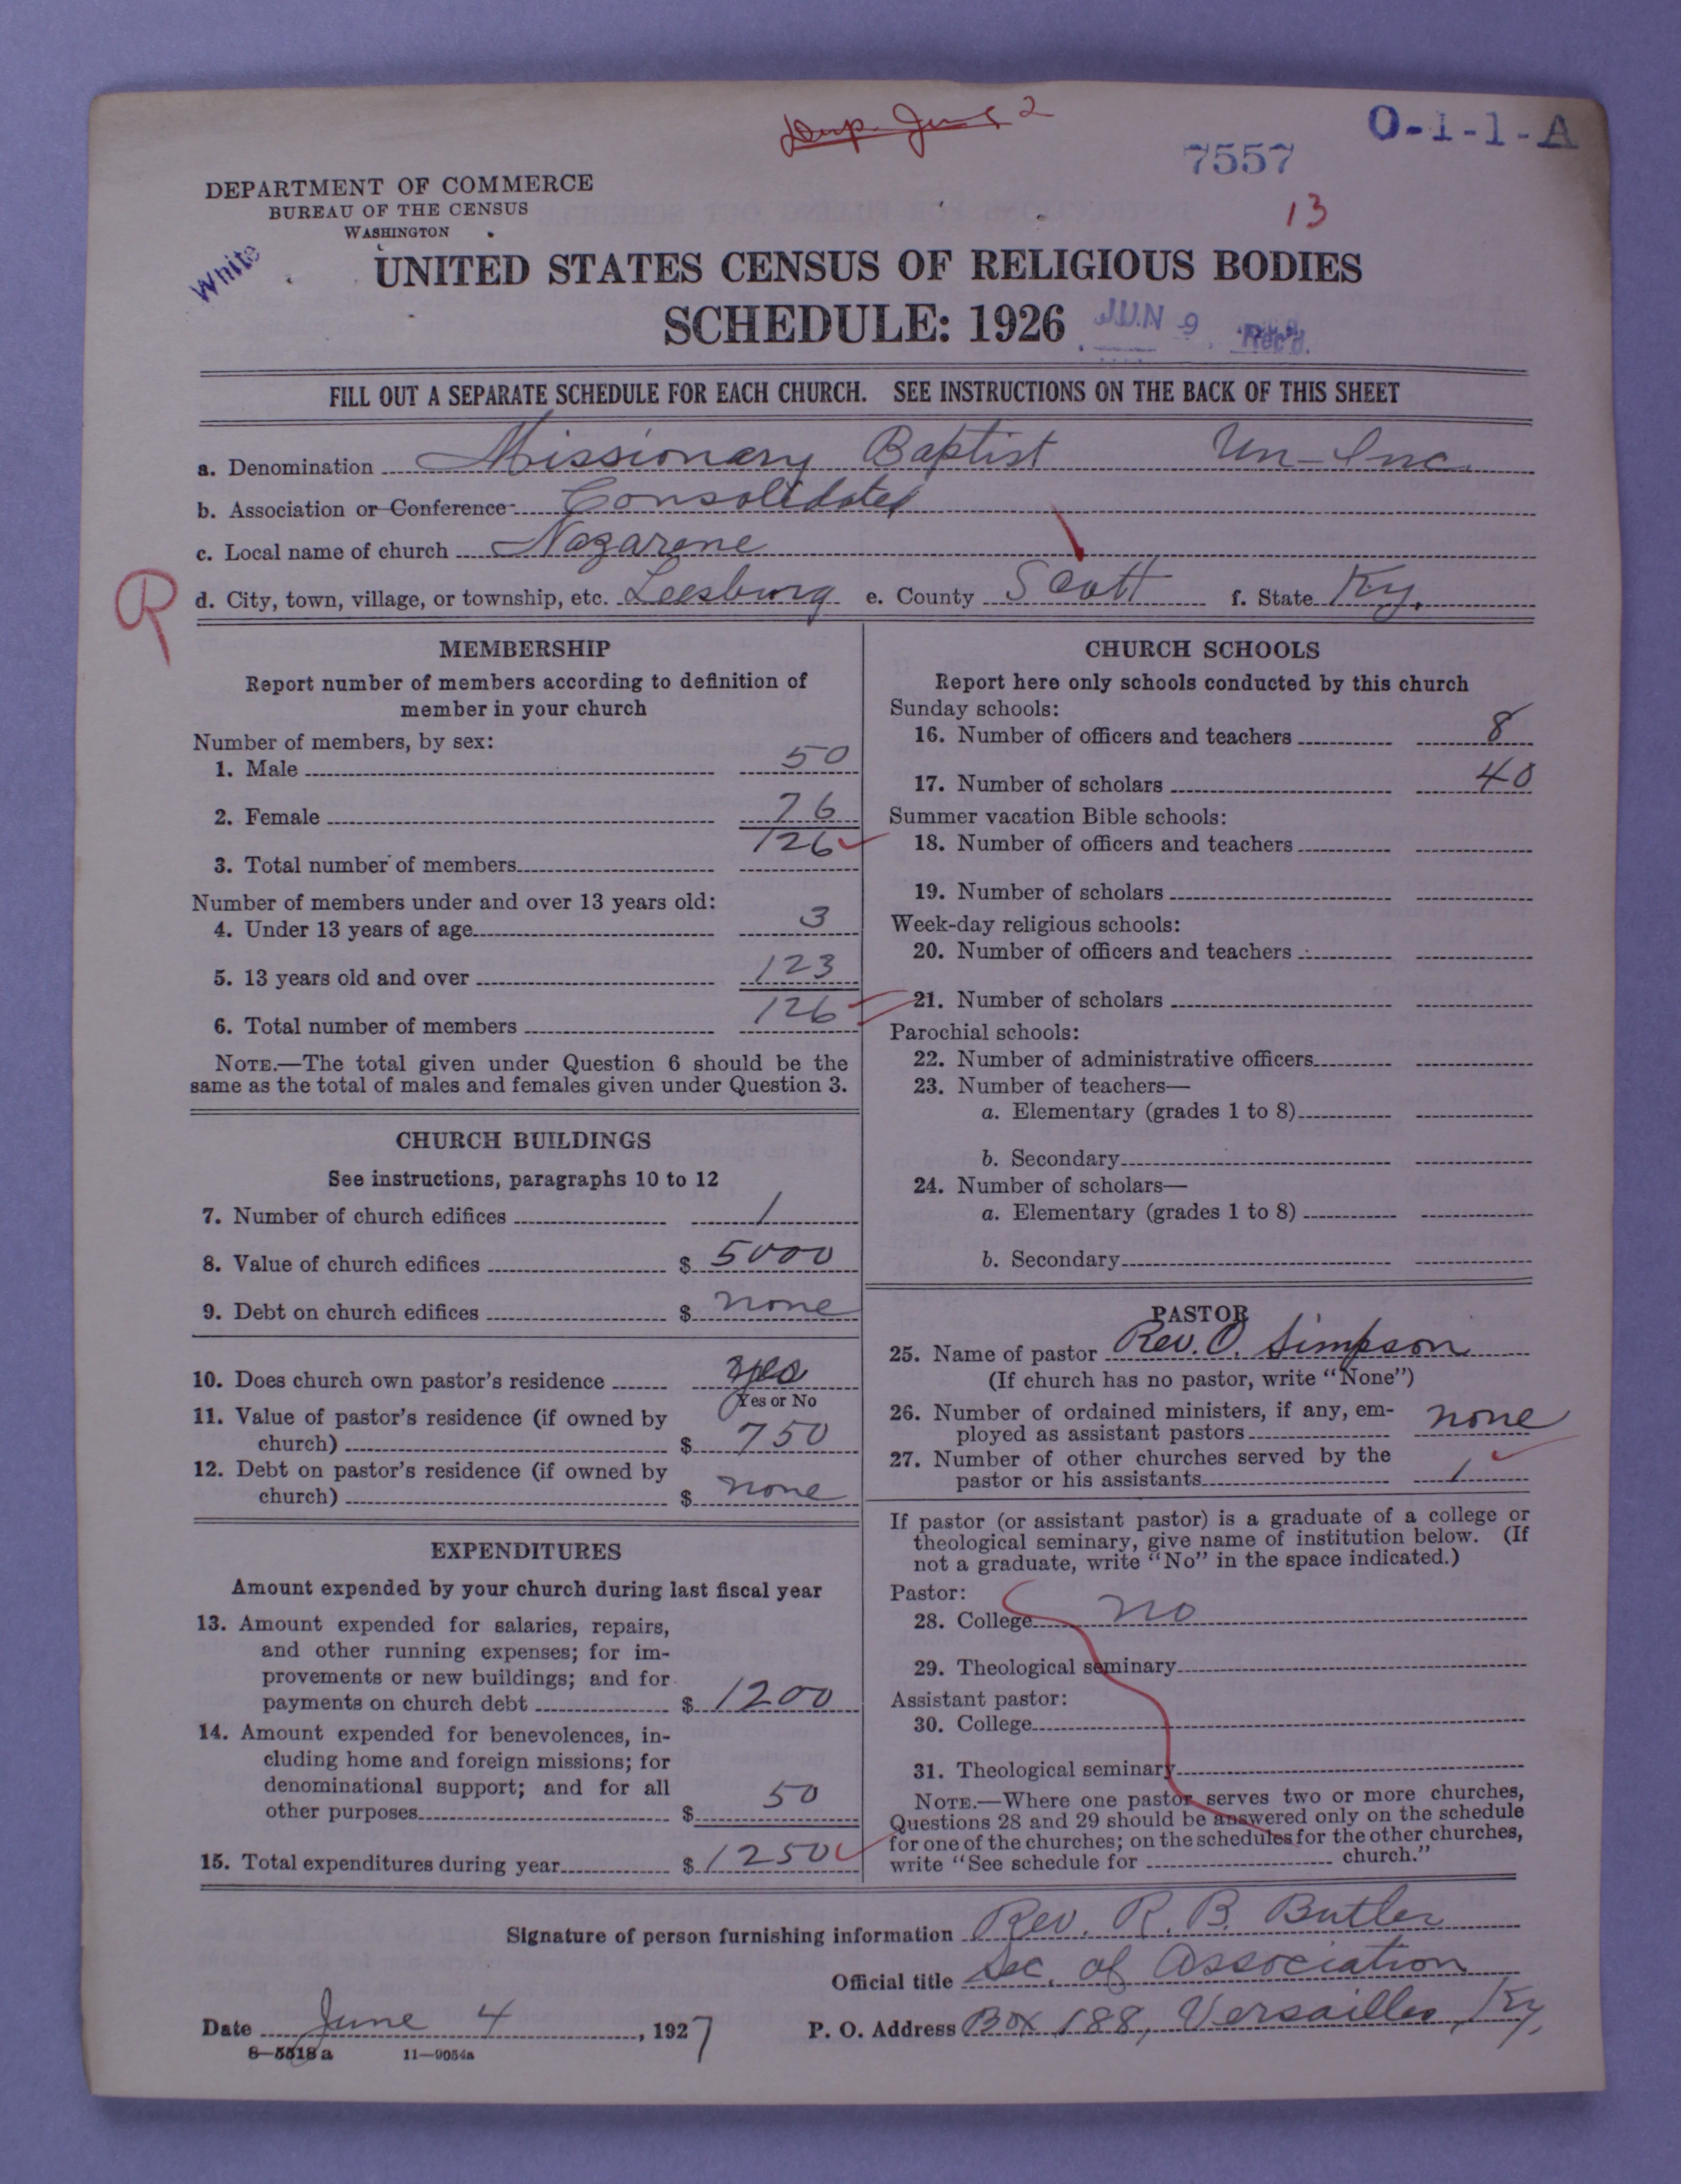 Dup. June 2
O-1-1-A
7557
13
DEPARTMENT OF COMMERCE
BUREAU OF THE CENSUS
WASHINGTON
White
UNITED STATES CENSUS OF RELIGIOUS BODIES
SCHEDULE: 1926
JUN 9 Rec'd.
FILL OUT A SEPARATE SCHEDULE FOR EACH CHURCH. SEE INSTRUCTIONS ON THE BACK OF THIS SHEET
a. Denomination Missionary Baptist Un-Inc.
b. Association or Conference Consolidated
c. Local name of church Nazarene
R
d. City, town, village, or township, etc. Leesburg e. County Scott f. State Ky.
MEMBERSHIP
Report number of members according to definition of
member in your church
Number of members, by sex:
1. Male 50
2. Female 76
3. Total number of members 126
Number of members under and over 13 years old:
4. Under 13 years of age 3
5. 13 years old and over 123
6. Total number of members 126
NOTE.—The total given under Question 6 should be the
same as the total of males and females given under Question 3.
CHURCH BUILDINGS
See instructions, paragraphs 10 to 12
7. Number of church edifices 1
8. Value of church edifices $ 5000
9. Debt on church edifices $ none
10. Does church own pastor's residence yes
Yes or No
11. Value of pastor's residence (if owned by
church) $ 750
12. Debt on pastor's residence (if owned by
church) $ none
EXPENDITURES
Amount expended by your church during last fiscal year
13. Amount expended for salaries, repairs,
and other running expenses; for im-
provements or new buildings; and for
payments on church debt $ 1200
14. Amount expended for benevolences, in-
cluding home and foreign missions; for
denominational support; and for all
other purposes $ 50
15. Total expenditures during year $ 1250
CHURCH SCHOOLS
Report here only schools conducted by this church
Sunday schools:
16. Number of officers and teachers 8
17. Number of scholars 40
Summer vacation Bible schools:
18. Number of officers and teachers
19. Number of scholars
Week-day religious schools:
20. Number of officers and teachers
21. Number of scholars
Parochial schools:
22. Number of administrative officers
23. Number of teachers—
a. Elementary (grades 1 to 8)
b. Secondary
24. Number of scholars—
a. Elementary (grades 1 to 8)
b. Secondary
PASTOR
25. Name of pastor Rev. O. Simpson
(If church has no pastor, write "None")
26. Number of ordained ministers, if any, em-
ployed as assistant pastors none
27. Number of other churches served by the
pastor or his assistants 1
If pastor (or assistant pastor) is a graduate of a college or
theological seminary, give name of institution below. (If
not a graduate, write "No" in the space indicated.)
Pastor:
28. College no
29. Theological seminary
Assistant pastor:
30. College
31. Theological seminary
NOTE.—Where one pastor serves two or more churches,
Questions 28 and 29 should be answered only on the schedule
for one of the churches; on the schedules for the other churches,
write "See schedule for church."
Signature of person furnishing information Rev. R. B. Butler
Official title Sec. of Association
Date June 4, 1927 P. O. Address Box 188, Versailles, Ky.
8—5518 a 11—9054a